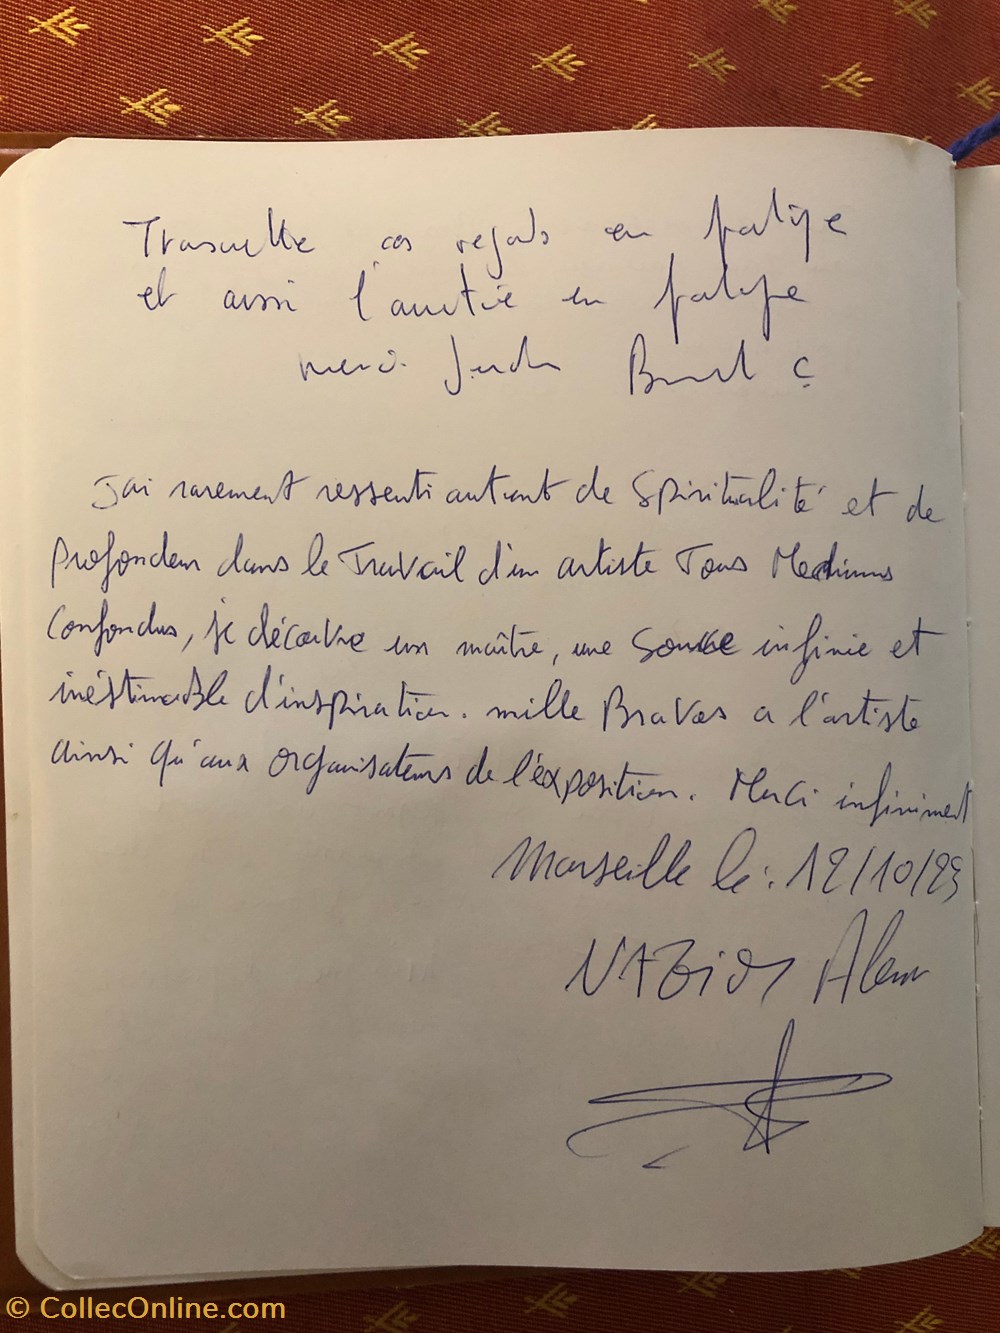 ces regards en partage
et aussi l'amitié en partage
merci
J'ai rarement ressenti autant de Spiritualité et de
profondeur dans le Travail d'un artiste Tous Mediums
Confondus, je découvre un maître, une source infinie et
inéstimable d'inspiration. mille Bravos a l'artiste
ainsi qu'aux organisateurs de l'éxposition. Merci infiniment
Marseille le : 12/10/23
Alan
© CollecOnline.com